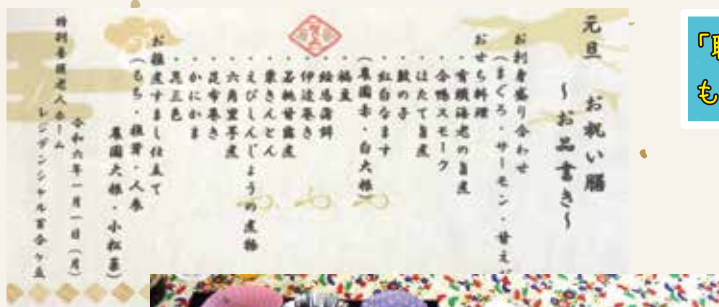 元旦 お祝い膳
~お品書き~
お刺身盛り合わせ
(まぐろ・サーモン・甘え
おせち料理
・有頭海老の旨煮
・合鴨スモーク
・ほたて旨煮
・数の子
・紅白なます
(農園赤・白大根)
・楠豆
・絵馬蒲鉾
・伊達巻き
・若桃甘露煮
・栗きんとん
・えびしんじょうの煮物
・六角里芋煮
・昆布巻き
・かにかま
・黒三色
お雑煮すまし仕立て
(もち・椎茸・人参
農園大根・小松菜)
令和六年一月一日(月)
特別養護老人ホーム
レジデンシャル百合ヶ丘
「
も